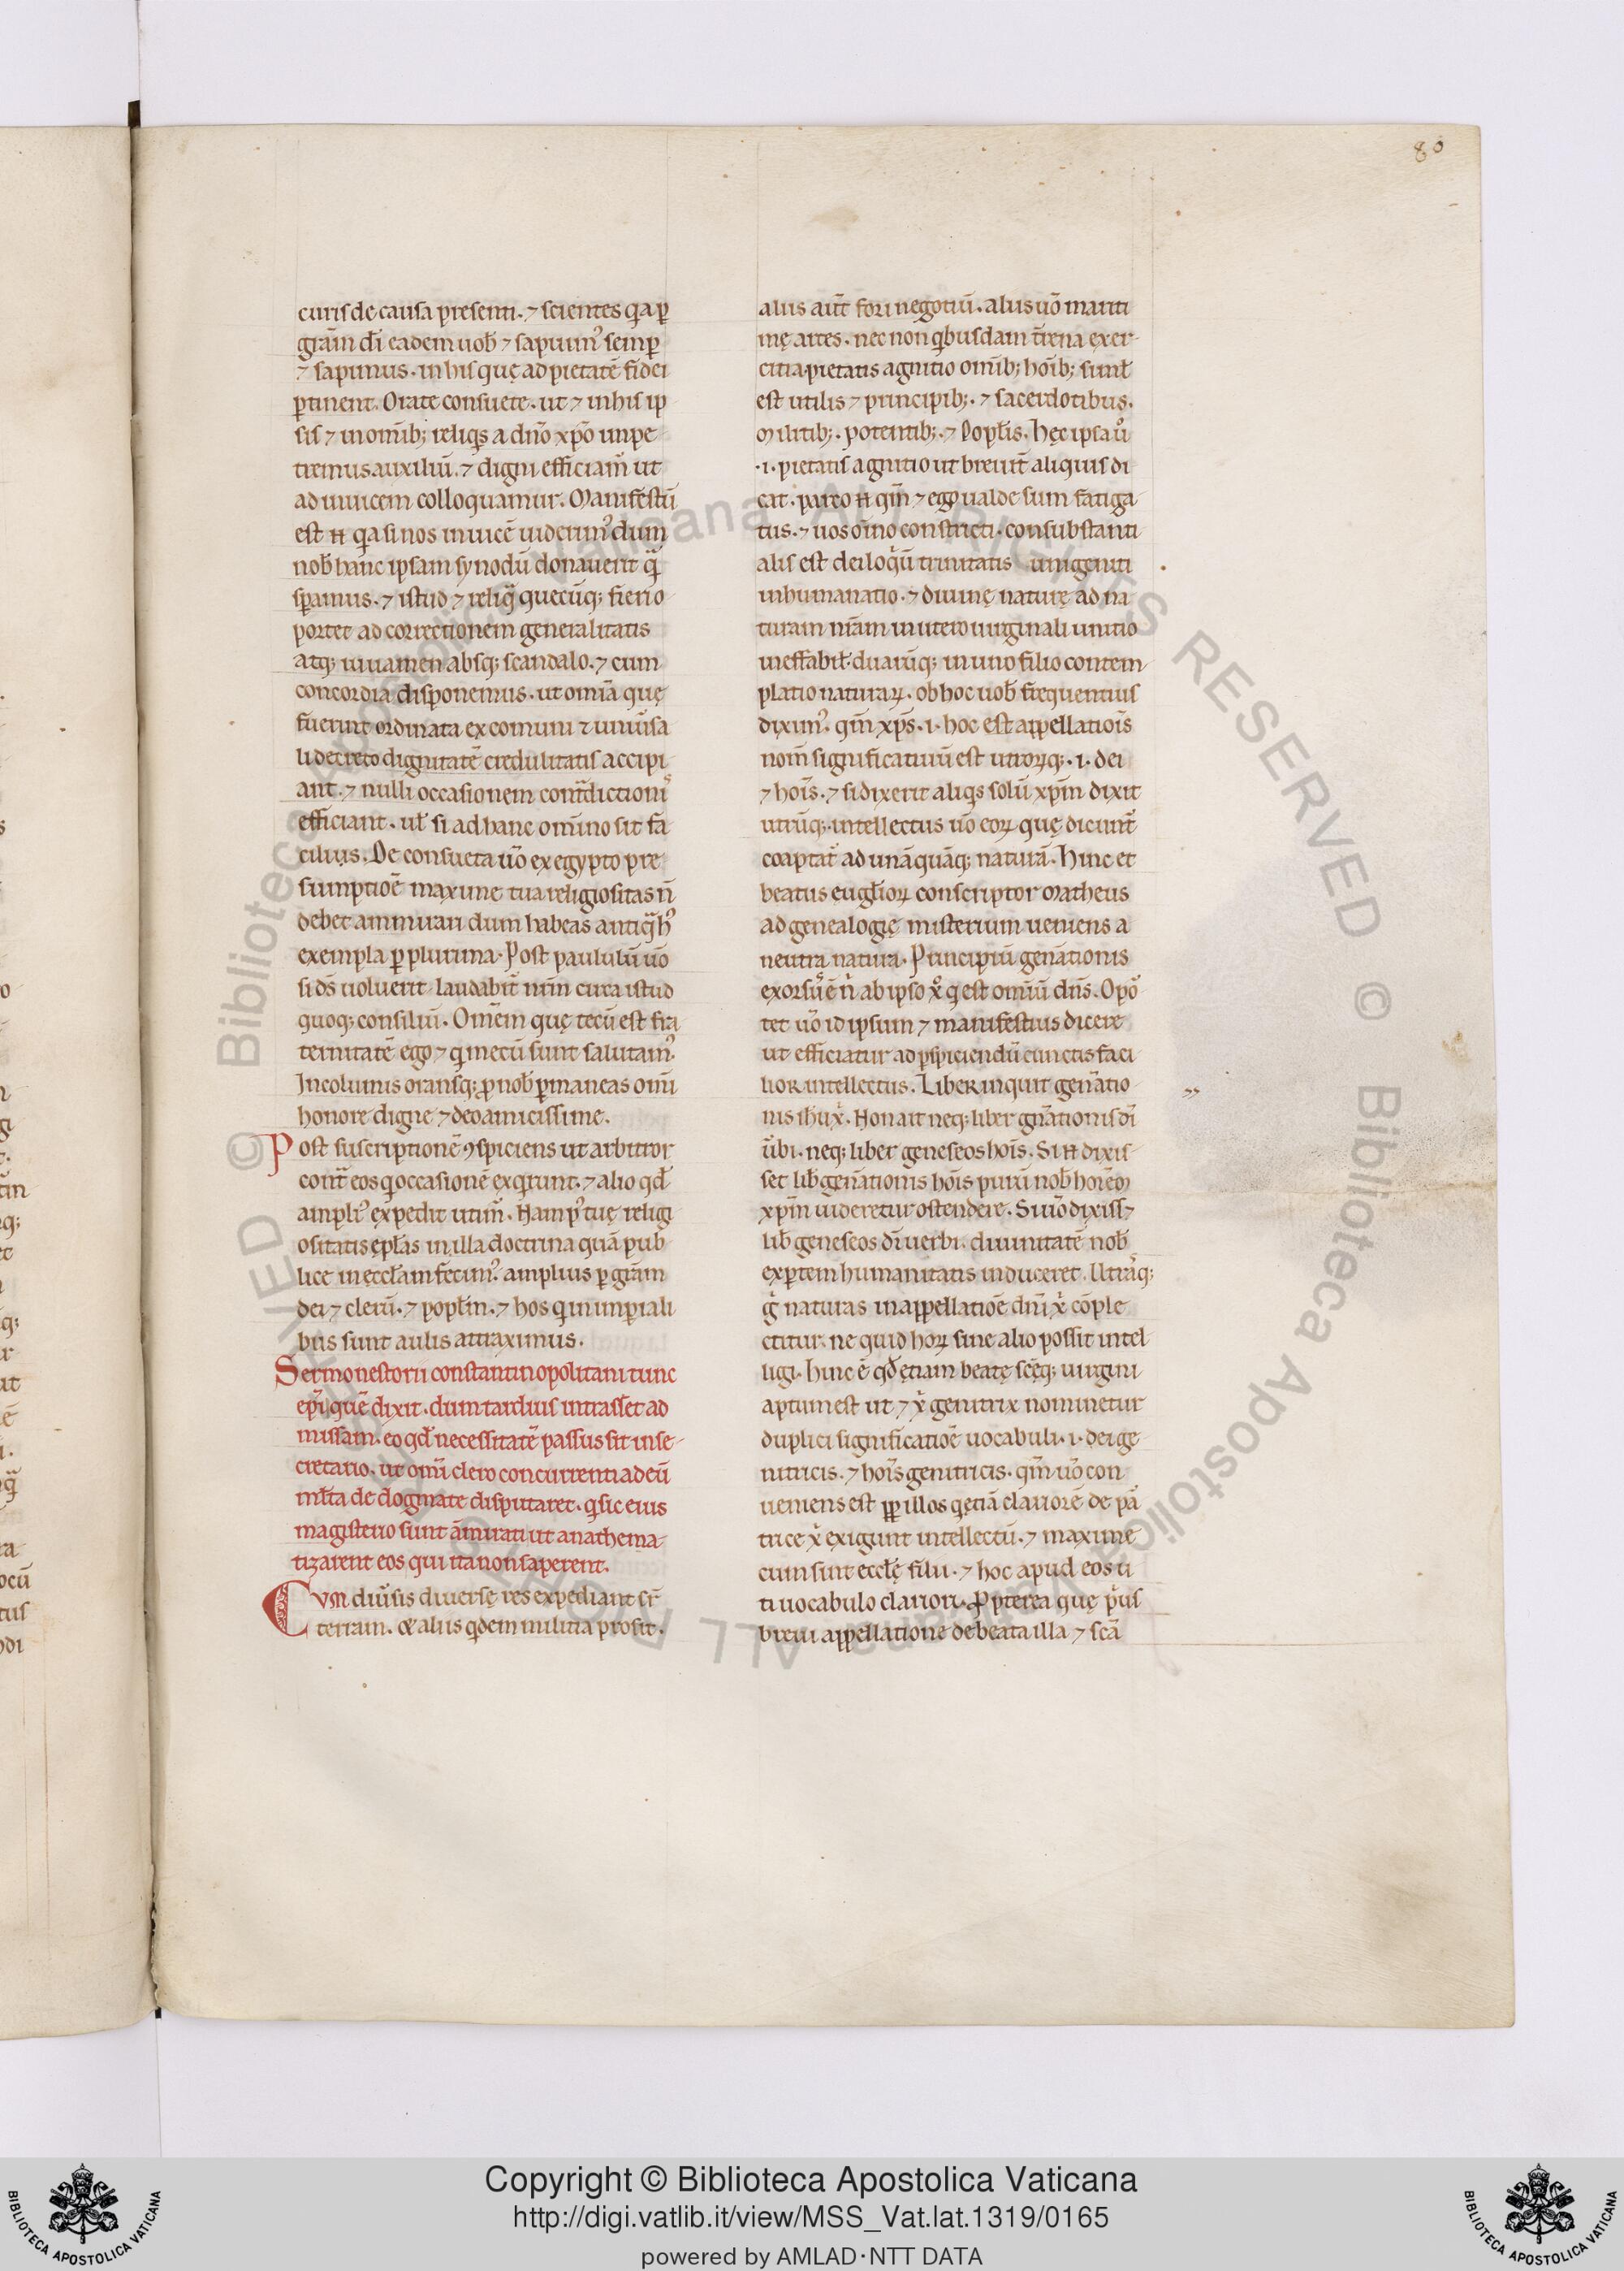 80
curis de causa presenti. ⁊ scientes q̇a ꝑ
gr̄am dī eadem uob̄ ⁊ sapuim᷒ semꝑ
⁊ sapimus. in his quę ad pietatē fidei
ꝑtinent. Orate consuete. ut ⁊ in his ip
sis ⁊ in om̄ib; reliq̇s a dn̄o xp̄o inpe
tremus auxiliū. ⁊ digni efficiam᷒ ut
ad inuicem colloquamur. Manifestū
est n̄ q̇a si nos inuicē uiderim᷒ dum
nob̄ hanc ipsam synodū donauerit q̄
sꝑamus. ⁊ istud ⁊ reliq̄ quecūq; fieri o
portet ad correctionem generalitatis
atq; iuuamen absq; scandalo. ⁊ cum
concordia disponemus. ut omīa quę
fuerint ordinata ex comuni ⁊ uniūsa
li decreto dignitatē credulitatis accipi
ant. ⁊ nulli occasionem cont̄dictionis
efficiant. ut̄ si ad hanc omnino sit fa
cilius. De consueta ūo ex egypto pre
sumptiōe maxime tua religiositas n̄
debet ammirari dum habeas antiq̄ h᷒
exempla ꝑ plurima. Post paululū ūo
si d̄s uoluerit laudabit᷒ nr̄m circa istud
quoq; consiliū. Omēm quę tecū est fra
ternitatē ego ⁊ q̇ mecū sunt salutam᷒.
Incolumis oransq; ꝓ nob̄ ꝑmaneas omī
honore digne ⁊ deo amicissime.
Post suscriptionē ꝯspiciens ut arbitror
cont̄ eos q̇ occasionē exq̇runt. ⁊ alio qd̄
ampli᷒ expedit utim᷒. Nam p᷒ tuę religi
ositatis ep̄las in illa doctrina quā pub
lice in eccl̄am fecim᷒. amplius ꝑ gr̄am
dei ⁊ clerū. ⁊ popl̄m. ⁊ hos q̇ in inꝑiali
bus sunt aulis attraximus.
Sermo nestorii constantinopolitani tunc
ep̄i quē dixit. dum tardius intrasset ad
missam. eo qd̄ necessitatē passus sit in se
cretario. ut omī clero concurrenti ad eū
ml̄ta de dogmate disputaret. q̇ sic eius
magisterio sunt āmirati ut anathema
tizarent eos qui ita non saperent.
CVM diūsis diuersę res expediant fr̄
terram. & aliis q̇dem militia prosit.
aliis aūt fori negotiū. aliis uō mariti
mę artes. nec non q̇busdam t̄rena exer
citia pietatis agnitio om̄ib; hoīb; simł
est utilis ⁊ principib;. ⁊ sacerdotibus.
Militib;. potentib;. ⁊ Popl̄is. Hęc ipsa ū
.i. pietatis agnitio ut breuit᷒ aliquis di
cat. parco n̄ qm̄ ⁊ ego ualde sum fatiga
tus. ⁊ uos oīno constricti. consubstanti
alis est dei loq̇ū trinitatis unigeniti
inhumanatio. ⁊ diuinę naturę ad na
turam nr̄am in utero uirginali unitio
ineffabil̄. duarūq; in uno filio contem
platio naturaꝝ. ob hoc uob̄ frequentius
dixim᷒. qm̄ xp̄s. i. hoc est appellatiōis
nom̄ significatiuū est utroꝝq;. i. dei
⁊ hoīs. ⁊ si dixerit aliq̇s solū xp̄m dixit
utrūq;. intellectus uō eoꝝ quę dicunt᷒
coaptat᷒ ad unāquāq; naturā. Hinc et
beatus eugl̄ioꝝ conscriptor Matheus
ad genealogię misterium ueniens a
neutra natura. Principiū gen̄ationis
exorsus ē n̄ ab ipso x̄ q̇ est omīū dn̄s. Opo᷒
tet ūo id ipsum ⁊ manifestius dicere
ut efficiatur ad ꝑspiciendū cunctis faci
lior intellectus. Liber inquit gen̄atio
nis ih̄u x̄. Non ait neq; liber gn̄ationis dī
ūbi. neq; liber geneseos hoīs. Si n̄ dixis
set lib̄ gen̄ationis hoīs purū nob̄ hoīem
xp̄m uideretur ostendere. Si uō dixiss⁊
lib̄ geneseos dī uerbi. diuinitatē nob̄
exꝑtem humanitatis induceret. Utrasq;
g̊ naturas in appellatiōe dn̄i x̄ cōple
ctitur. ne quid hoꝝ sine alio possit intel
ligi. Hinc ē qd̄ etiam beatę scēq; uirgini
aptum est ut ⁊ x̄ genitrix nominetur
duplici significatiōe uocabuli. i. dei ge
nitricis. ⁊ hoīs genitricis. qm̄ uō con
ueniens est ꝓp illos q̇ etiā clariorē de pa
trice x̄ exigunt intellectū. ⁊ maxime
cum sint eccl̄ę filii. ⁊ hoc apud eos u
ti uocabulo clariori. Propterea quę p̄us
breui appellatione de beata illa ⁊ scā
© Biblioteca Apostolica Vaticana ALL RIGHTS RESERVED © Biblioteca Apostolica Vaticana ALL RIGHTS RESERVED
Copyright © Biblioteca Apostolica Vaticana
http://digi.vatlib.it/view/MSS_Vat.lat.1319/0165
powered by AMLAD·NTT DATA
BIBLIOTECA APOSTOLICA VATICANA
BIBLIOTECA APOSTOLICA VATICANA